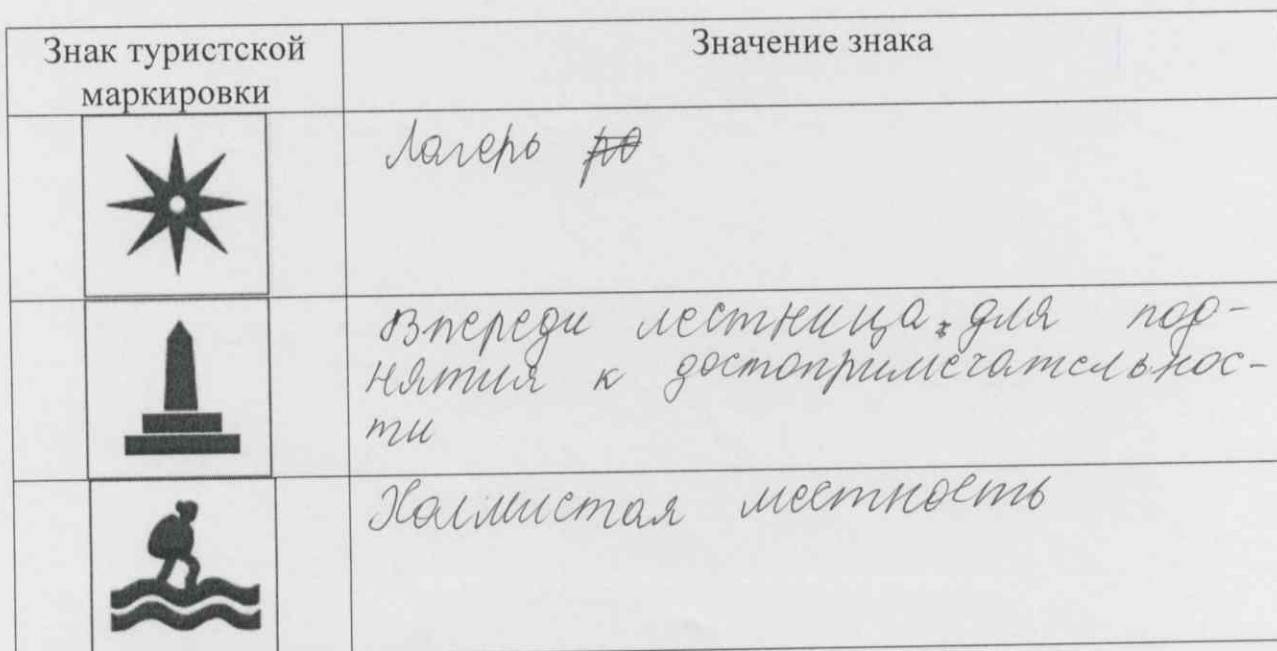 Знак туристской
маркировки
Значение знака
Лагерь
Впереди лестница для под-
нятия к достопримечательнос-
ти
Холмистая местность